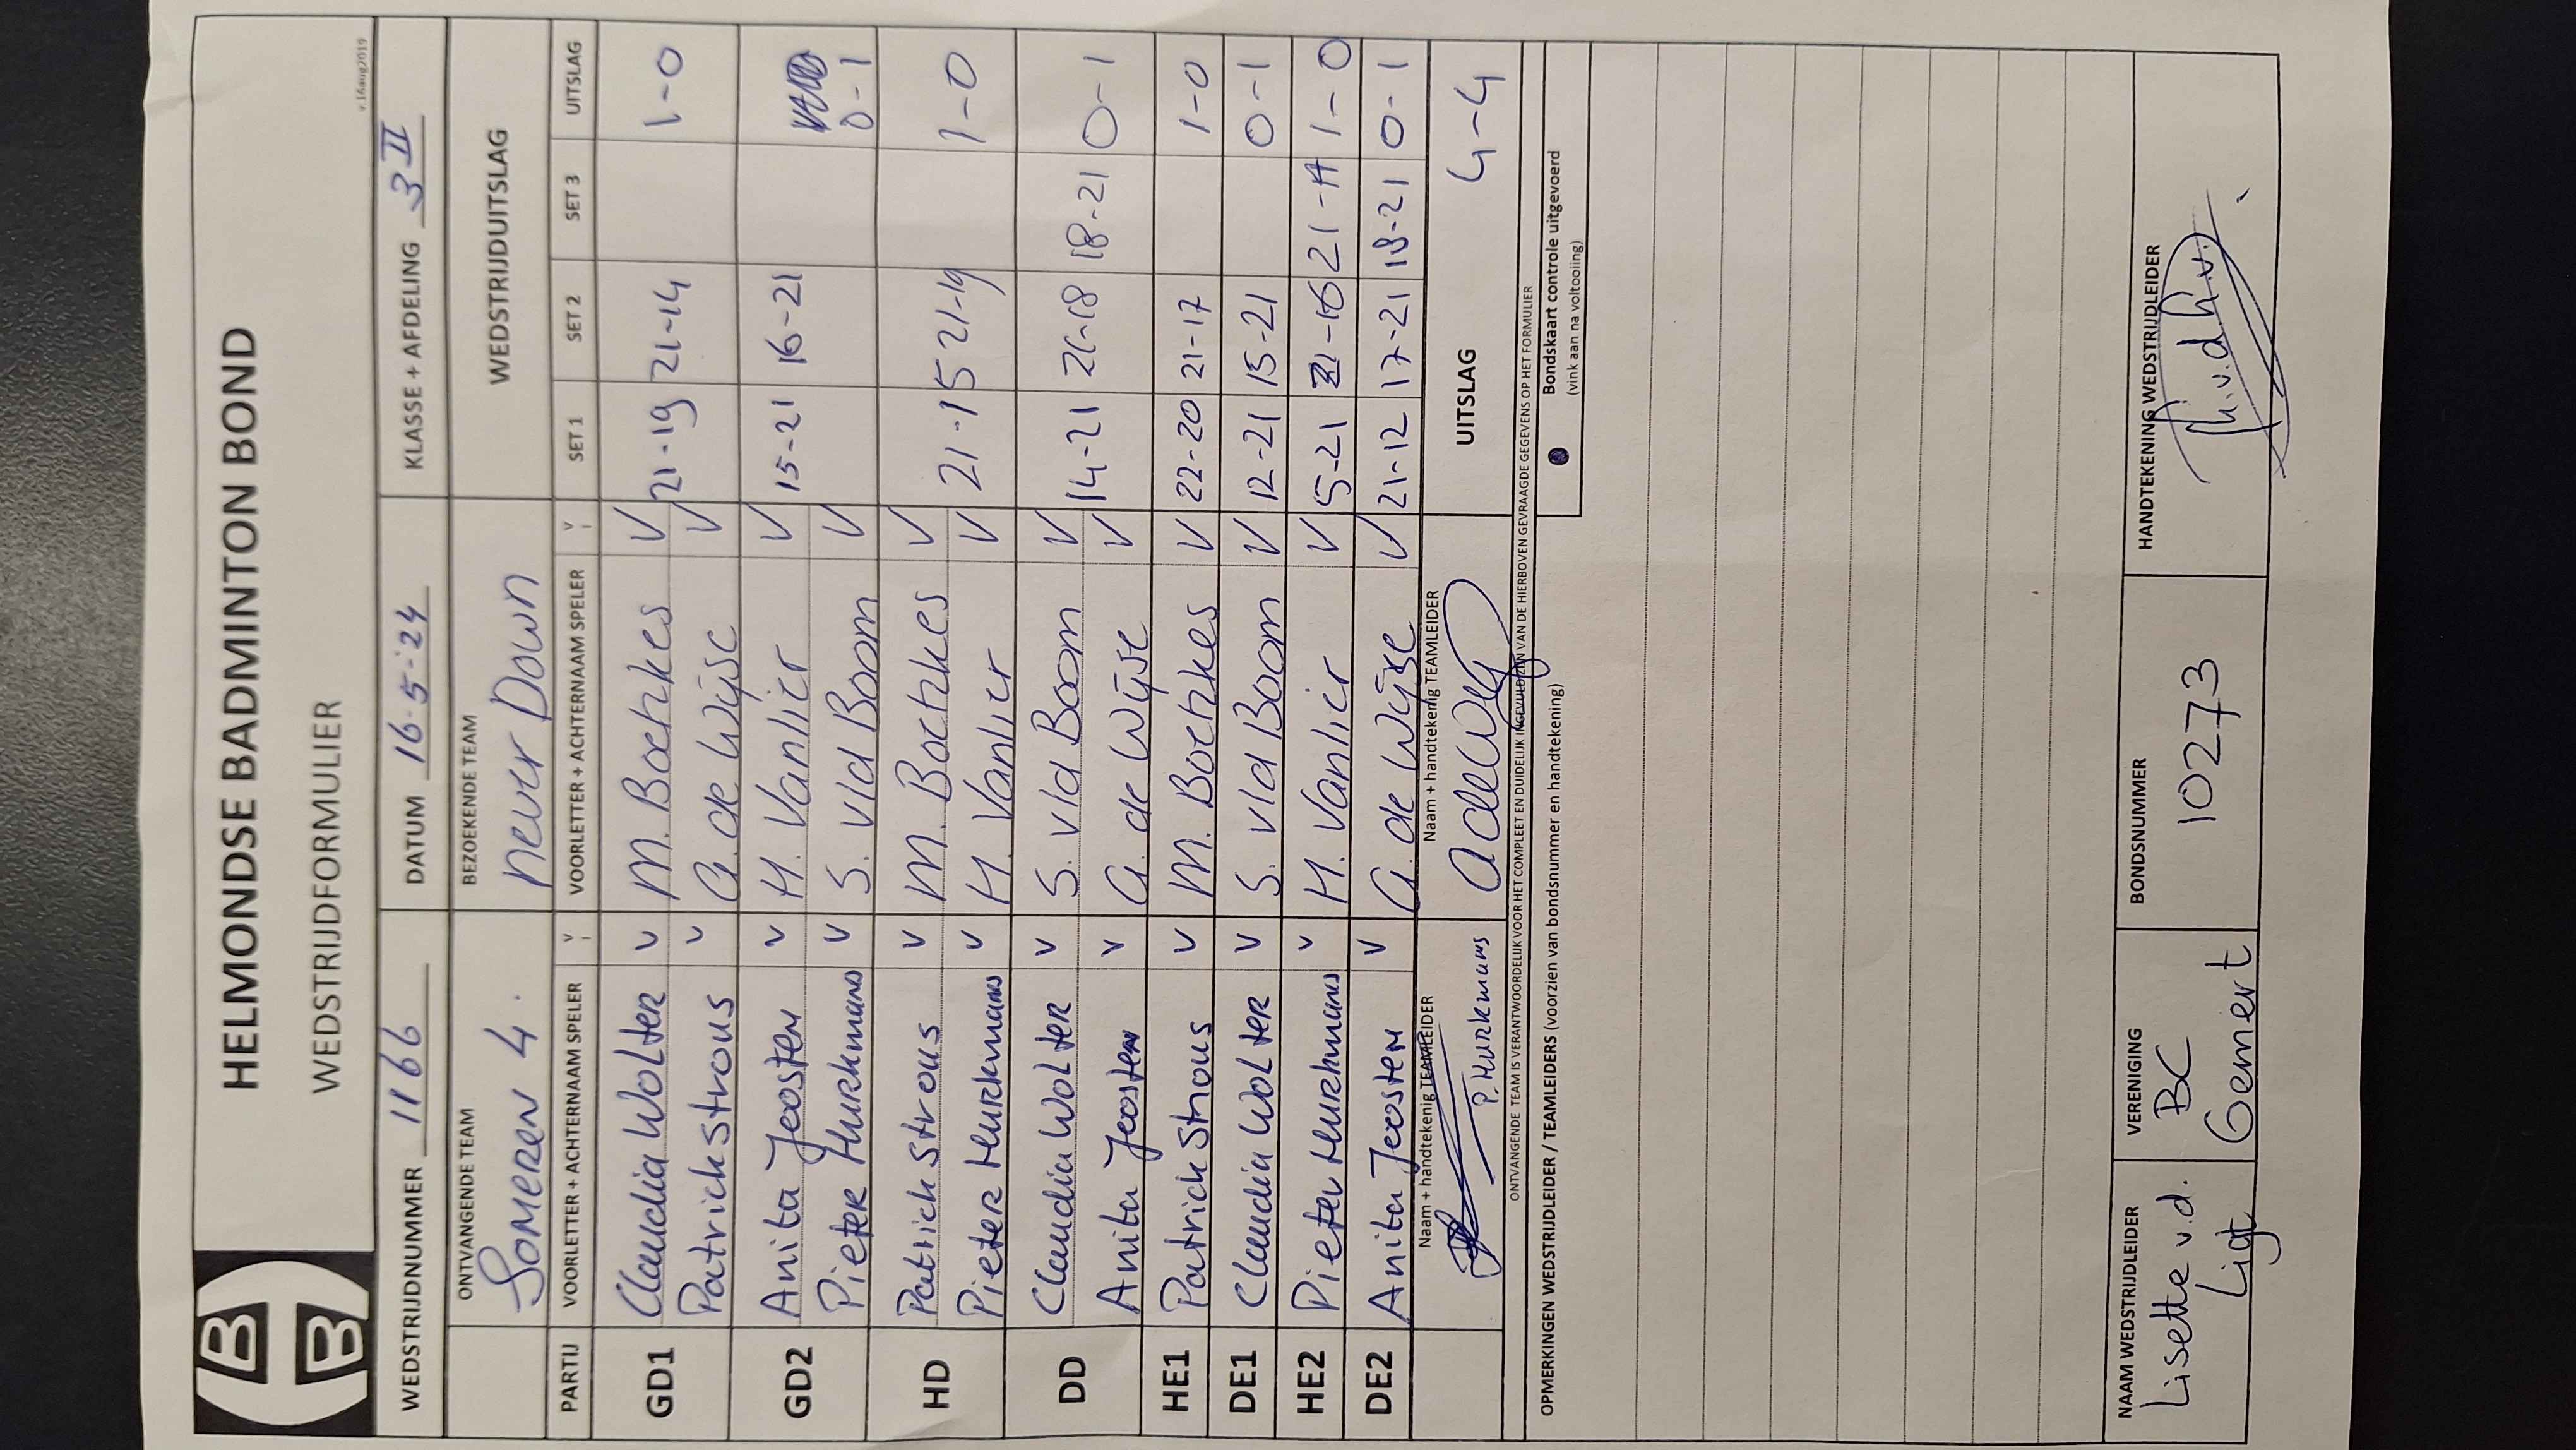 HB
B
HELMONDSE BADMINTON BOND
WEDSTRIJDFORMULIER
v.16aug2019
WEDSTRIJDNUMMER 1166 DATUM 16-5-'24 KLASSE + AFDELING 3 II
ONTVANGENDE TEAM BEZOEKENDE TEAM WEDSTRIJDUITSLAG
Someren 4. never Down
PARTIJ VOORLETTER + ACHTERNAAM SPELER V VOORLETTER + ACHTERNAAM SPELER V SET 1 SET 2 SET 3 UITSLAG
GD1 Claudia Wolter v M. Boetzkes V 21-19 21-14 1-0
Patrick Strous v A. de Wijse V
GD2 Anita Joosten v H. Vanlier V 15-21 16-21
Pieter Hurkmans v S. v/d Boom V 0-1
HD Patrick Strous v M. Boetzkes V
Pieter Hurkmans v H. Vanlier V 21-15 21-19 1-0
DD Claudia Wolter v S. v/d Boom V 14-21 18-21 0-1
Anita Joosten v A. de Wijse V
HE1 Patrick Strous v M. Boetzkes V 22-20 21-17 1-0
DE1 Claudia Wolter v S. v/d Boom V 12-21 15-21 0-1
HE2 Pieter Hurkmans v H. Vanlier V 5-21 21-16 21-17 1-0
DE2 Anita Joosten v A. de Wijse V 21-12 17-21 18-21 0-1
Naam + handtekenig TEAMLEIDER Naam + handtekenig TEAMLEIDER UITSLAG 4-4
P. Hurkmans
ONTVANGENDE TEAM IS VERANTWOORDELIJK VOOR HET COMPLEET EN DUIDELIJK INGEVULD ZIJN VAN DE HIERBOVEN GEVRAAGDE GEGEVENS OP HET FORMULIER
OPMERKINGEN WEDSTRIJDLEIDER / TEAMLEIDERS (voorzien van bondsnummer en handtekening)
Bondskaart controle uitgevoerd
(vink aan na voltooling)
NAAM WEDSTRIJDLEIDER VERENIGING BONDSNUMMER HANDTEKENING WEDSTRIJDLEIDER
Lisette v.d. BC 10273
Ligt Gemert